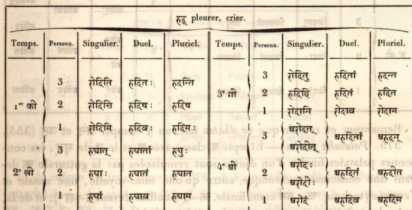 रुद् pleurer, crier.
Temps. Persons. Singulier. Duel. Pluriel. Temps. Persons. Singulier. Duel. Pluriel.
3 रोदिति रुदितः रुदन्ति 3 रोदितु रुदितां रुदन्तु
1re की 2 रोदिषि रुदिथः रुदिथ 3e गी 2 रुदिहि रुदितं रुदित
1 रोदिमि रुदिवः रुदिमः 1 रोदानि रोदाव रोदाम
3 रुद्यात् रुद्यातां रुद्युः 3 अरोदत् अरोदीत् अरुदितां अरुदन्
2e खी 2 रुद्याः रुद्यातं रुद्यात 4e घी 2 अरोदः अरोदीः अरुदितं अरुदित
1 रुद्यां रुद्याव रुद्याम 1 अरोदं अरुदिव अरुदिम